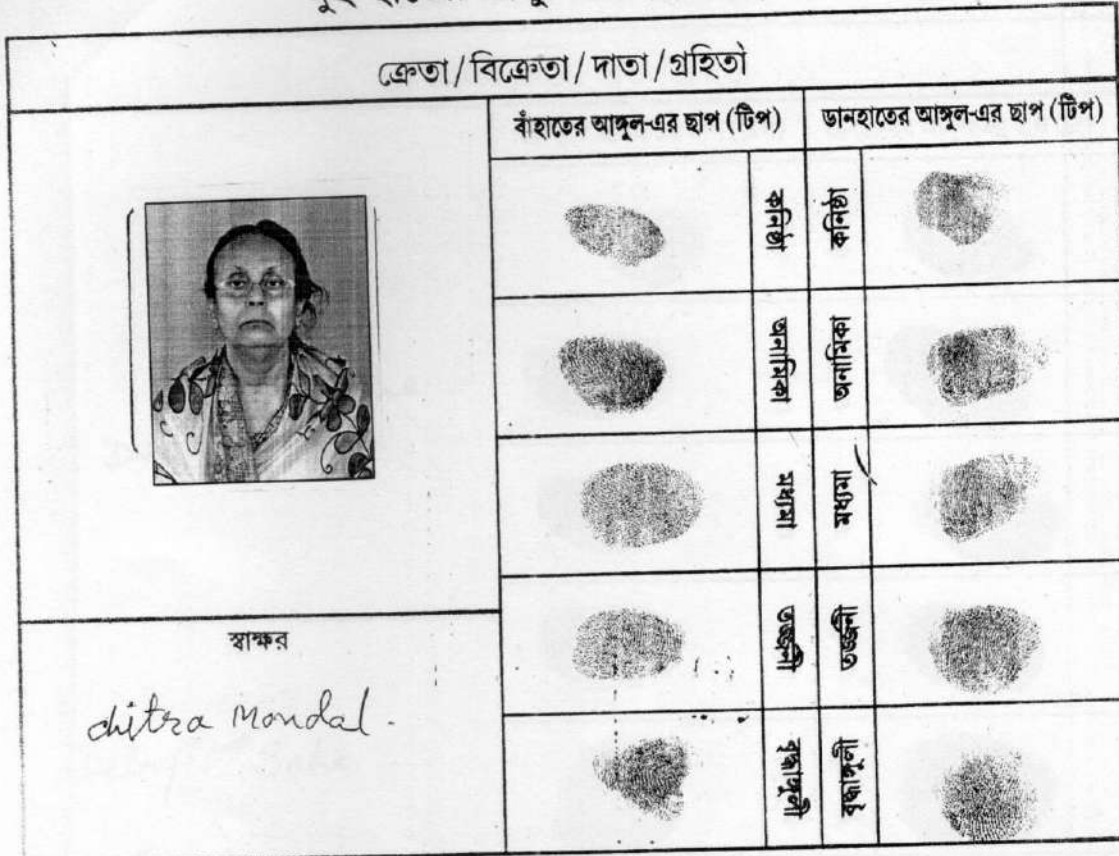 ক্রেতা/বিক্রেতা/দাতা/গ্রহিতা
বাঁহাতের আঙ্গুল-এর ছাপ (টিপ)
ডানহাতের আঙ্গুল-এর ছাপ (টিপ)
কনিষ্ঠা
কনিষ্ঠা
অনামিকা
অনামিকা
মধ্যমা
মধ্যমা
তর্জ্জনী
তর্জ্জনী
বৃদ্ধাঙ্গুলী
বৃদ্ধাঙ্গুলী
স্বাক্ষর
chitra Mondal.